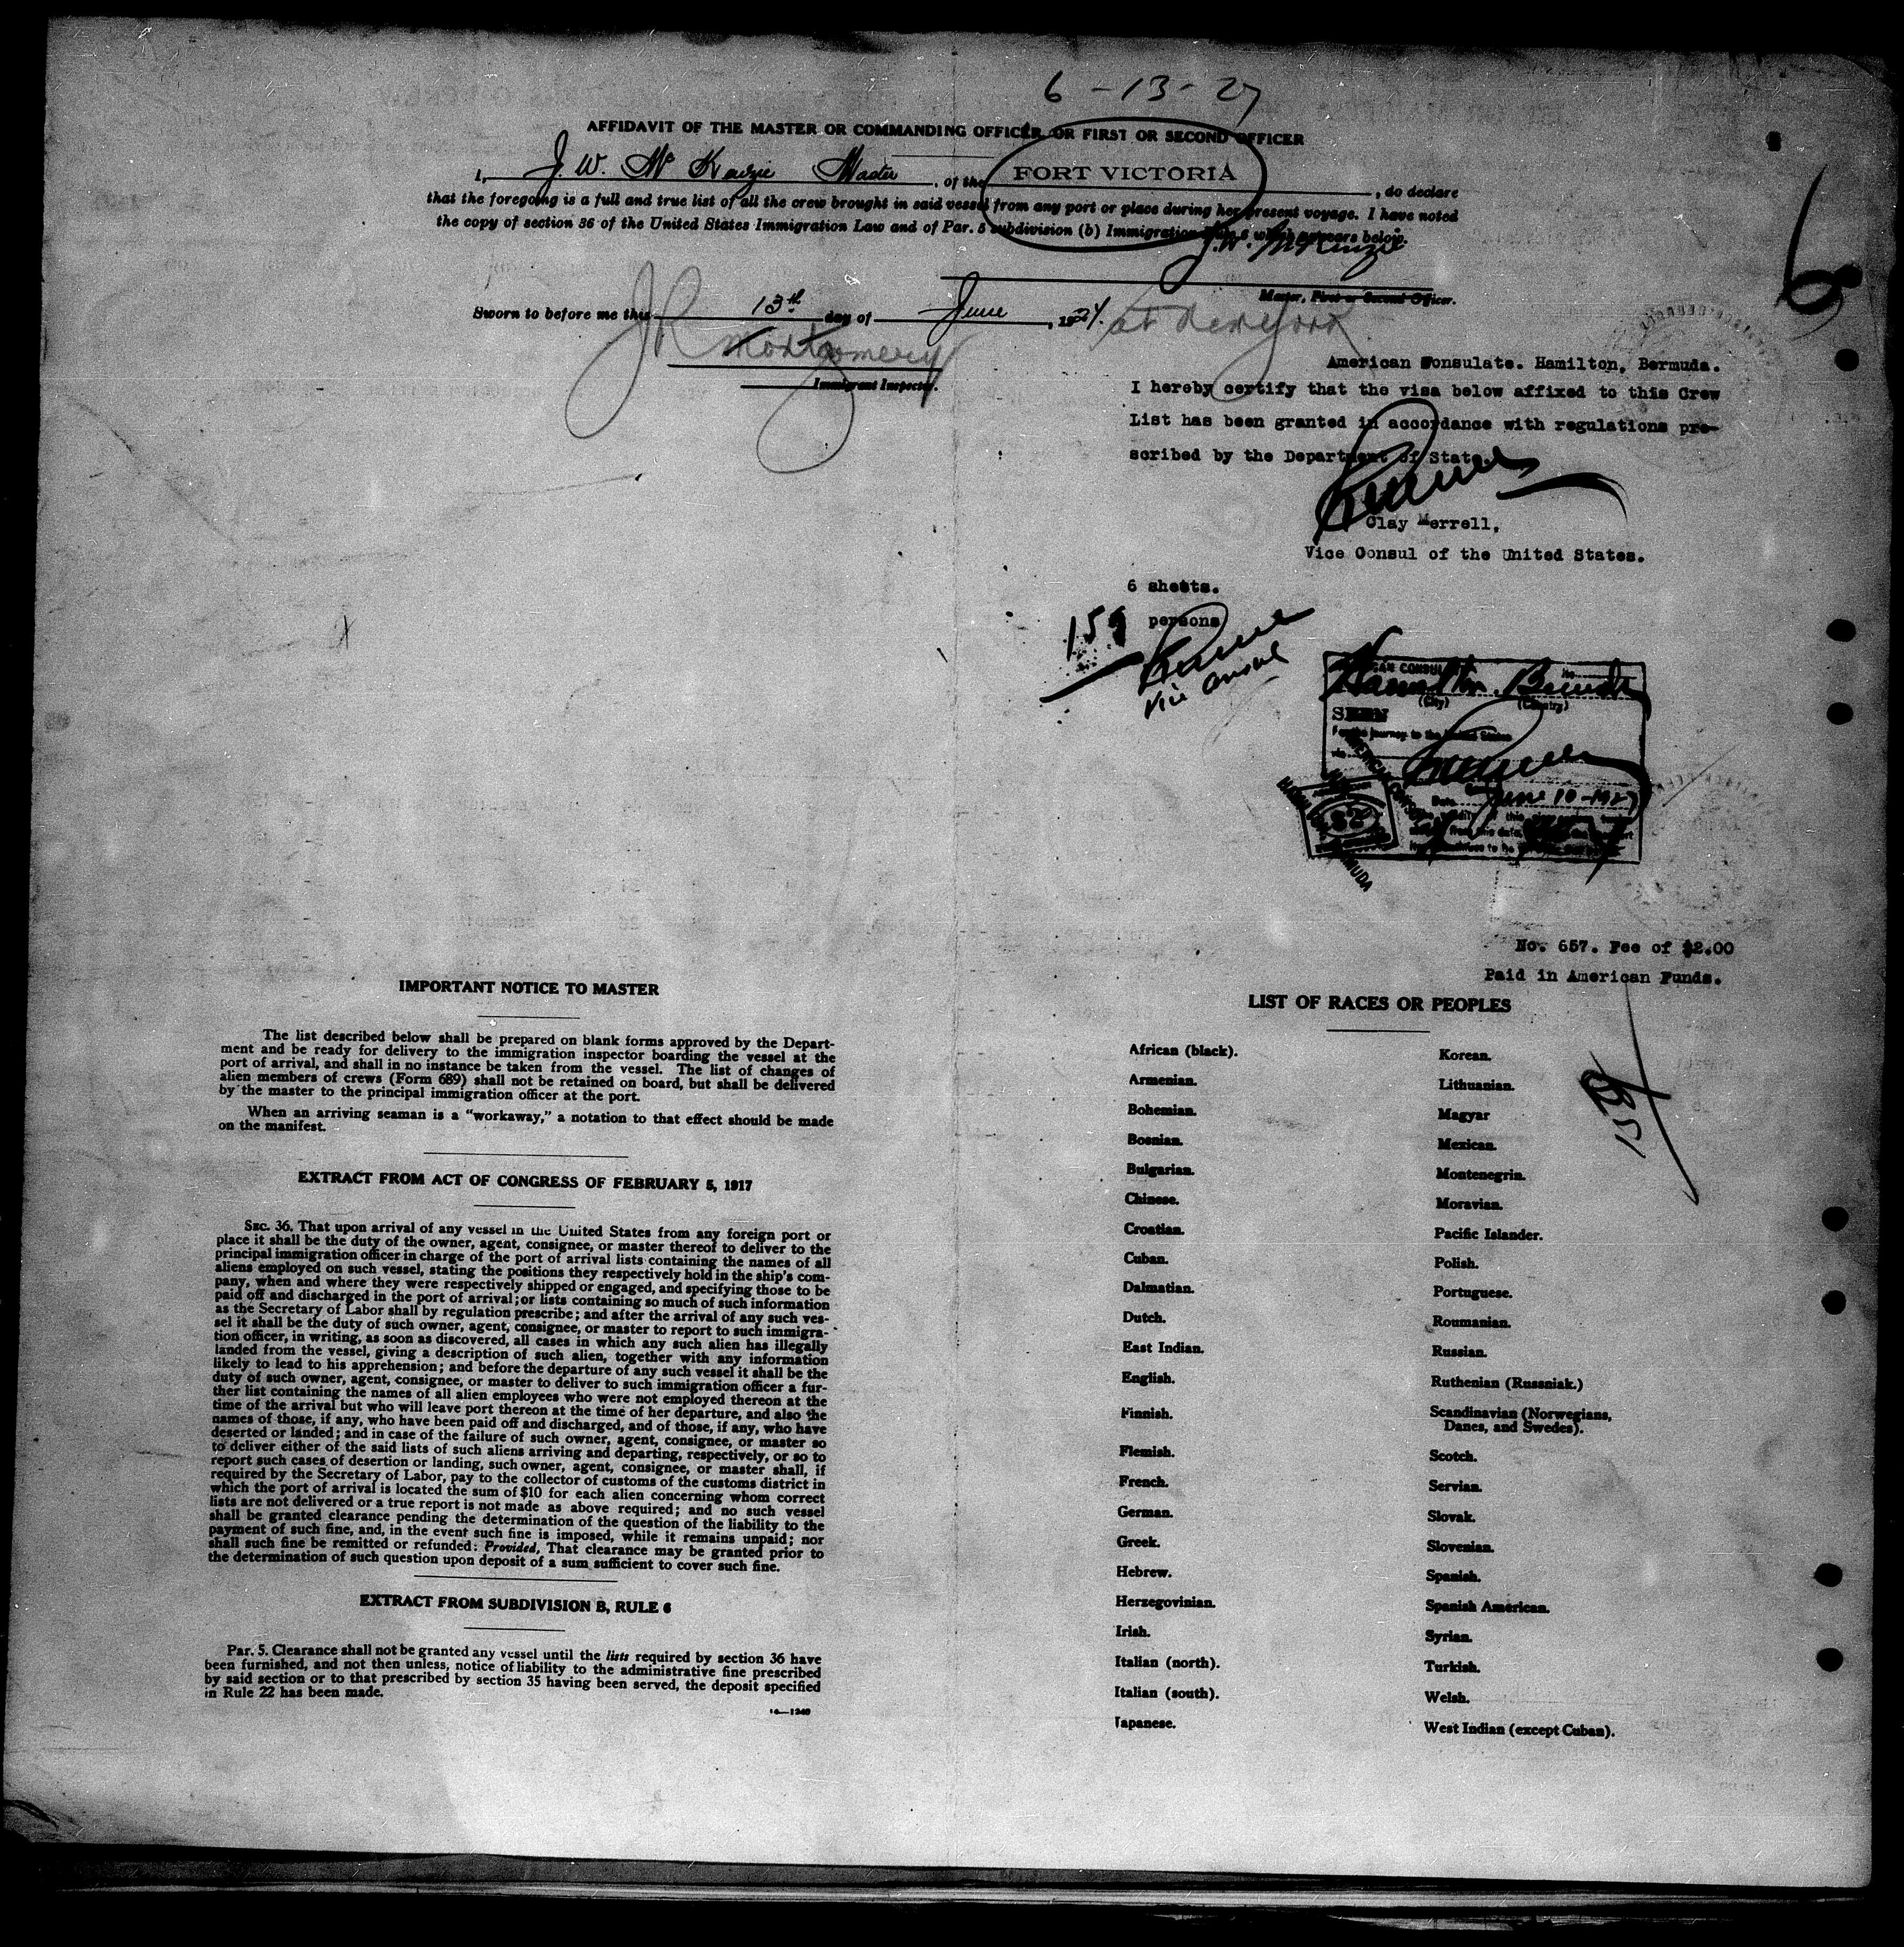 6 - 13 - 27
AFFIDAVIT OF THE MASTER OR COMMANDING OFFICER OR FIRST OR SECOND OFFICER
I, J. W. McKenzie Master, of the FORT VICTORIA, do declare
that the foregoing is a full and true list of all the crew brought in said vessel from any port or place during her present voyage. I have noted
the copy of section 36 of the United States Immigration Law and of Par. 5 subdivision (b) Immigration Rule 6 which appears below.
J. W. McKenzie
Master, First or Second Officer.
Sworn to before me this 13th day of June, 1927. at New York
JR Montgomery
Immigrant Inspector.
6
American Consulate. Hamilton, Bermuda.
I hereby certify that the visa below affixed to this Crew
List has been granted in accordance with regulations pre-
scribed by the Department of State.
Clay Merrell,
Vice Consul of the United States.
6 sheets.
159 persons
Vice Consul
Hamilton Bermuda
(City) (Country)
SEEN
For the journey to the United States
via
Date June 10-1927
No. 657. Fee of $2.00
Paid in American Funds.
IMPORTANT NOTICE TO MASTER
The list described below shall be prepared on blank forms approved by the Depart-
ment and be ready for delivery to the immigration inspector boarding the vessel at the
port of arrival, and shall in no instance be taken from the vessel. The list of changes of
alien members of crews (Form 689) shall not be retained on board, but shall be delivered
by the master to the principal immigration officer at the port.
When an arriving seaman is a "workaway," a notation to that effect should be made
on the manifest.
EXTRACT FROM ACT OF CONGRESS OF FEBRUARY 5, 1917
SEC. 36. That upon arrival of any vessel in the United States from any foreign port or
place it shall be the duty of the owner, agent, consignee, or master thereof to deliver to the
principal immigration officer in charge of the port of arrival lists containing the names of all
aliens employed on such vessel, stating the positions they respectively hold in the ship's com-
pany, when and where they were respectively shipped or engaged, and specifying those to be
paid off and discharged in the port of arrival; or lists containing so much of such information
as the Secretary of Labor shall by regulation prescribe; and after the arrival of any such ves-
sel it shall be the duty of such owner, agent, consignee, or master to report to such immigra-
tion officer, in writing, as soon as discovered, all cases in which any such alien has illegally
landed from the vessel, giving a description of such alien, together with any information
likely to lead to his apprehension; and before the departure of any such vessel it shall be the
duty of such owner, agent, consignee, or master to deliver to such immigration officer a fur-
ther list containing the names of all alien employees who were not employed thereon at the
time of the arrival but who will leave port thereon at the time of her departure, and also the
names of those, if any, who have been paid off and discharged, and of those, if any, who have
deserted or landed; and in case of the failure of such owner, agent, consignee, or master so
to deliver either of the said lists of such aliens arriving and departing, respectively, or so to
report such cases of desertion or landing, such owner, agent, consignee, or master shall, if
required by the Secretary of Labor, pay to the collector of customs of the customs district in
which the port of arrival is located the sum of $10 for each alien concerning whom correct
lists are not delivered or a true report is not made as above required; and no such vessel
shall be granted clearance pending the determination of the question of the liability to the
payment of such fine, and, in the event such fine is imposed, while it remains unpaid; nor
shall such fine be remitted or refunded: Provided, That clearance may be granted prior to
the determination of such question upon deposit of a sum sufficient to cover such fine.
EXTRACT FROM SUBDIVISION B, RULE 6
Par. 5. Clearance shall not be granted any vessel until the lists required by section 36 have
been furnished, and not then unless, notice of liability to the administrative fine prescribed
by said section or to that prescribed by section 35 having been served, the deposit specified
in Rule 22 has been made.
14—1240
LIST OF RACES OR PEOPLES
African (black).
Armenian.
Bohemian.
Bosnian.
Bulgarian.
Chinese.
Croatian.
Cuban.
Dalmatian.
Dutch.
East Indian.
English.
Finnish.
Flemish.
French.
German.
Greek.
Hebrew.
Herzegovinian.
Irish.
Italian (north).
Italian (south).
Japanese.
Korean.
Lithuanian.
Magyar
Mexican.
Montenegrin.
Moravian.
Pacific Islander.
Polish.
Portuguese.
Roumanian.
Russian.
Ruthenian (Russniak.)
Scandinavian (Norwegians,
Danes, and Swedes).
Scotch.
Servian.
Slovak.
Slovenian.
Spanish.
Spanish American.
Syrian.
Turkish.
Welsh.
West Indian (except Cuban).